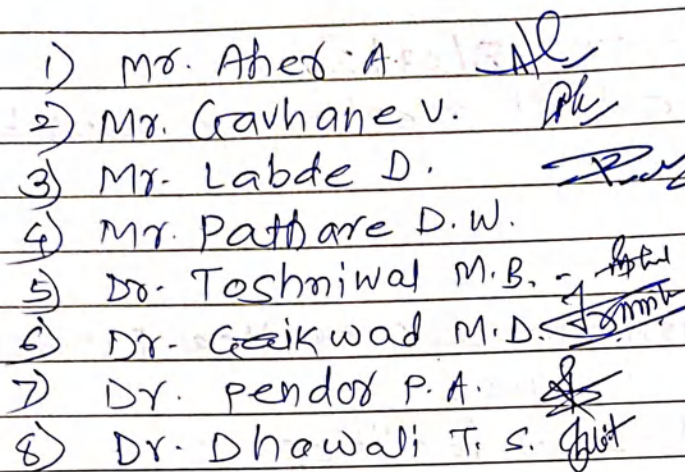 1) Mr. Aher A.
2) Mr. Gavhane V.
3) Mr. Labde D.
4) Mr. Pathare D.W.
5) Dr. Toshniwal M.B. -
6) Dr. Gaikwad M.D.
7) Dr. Pendor P.A.
8) Dr. Dhawali T. S.